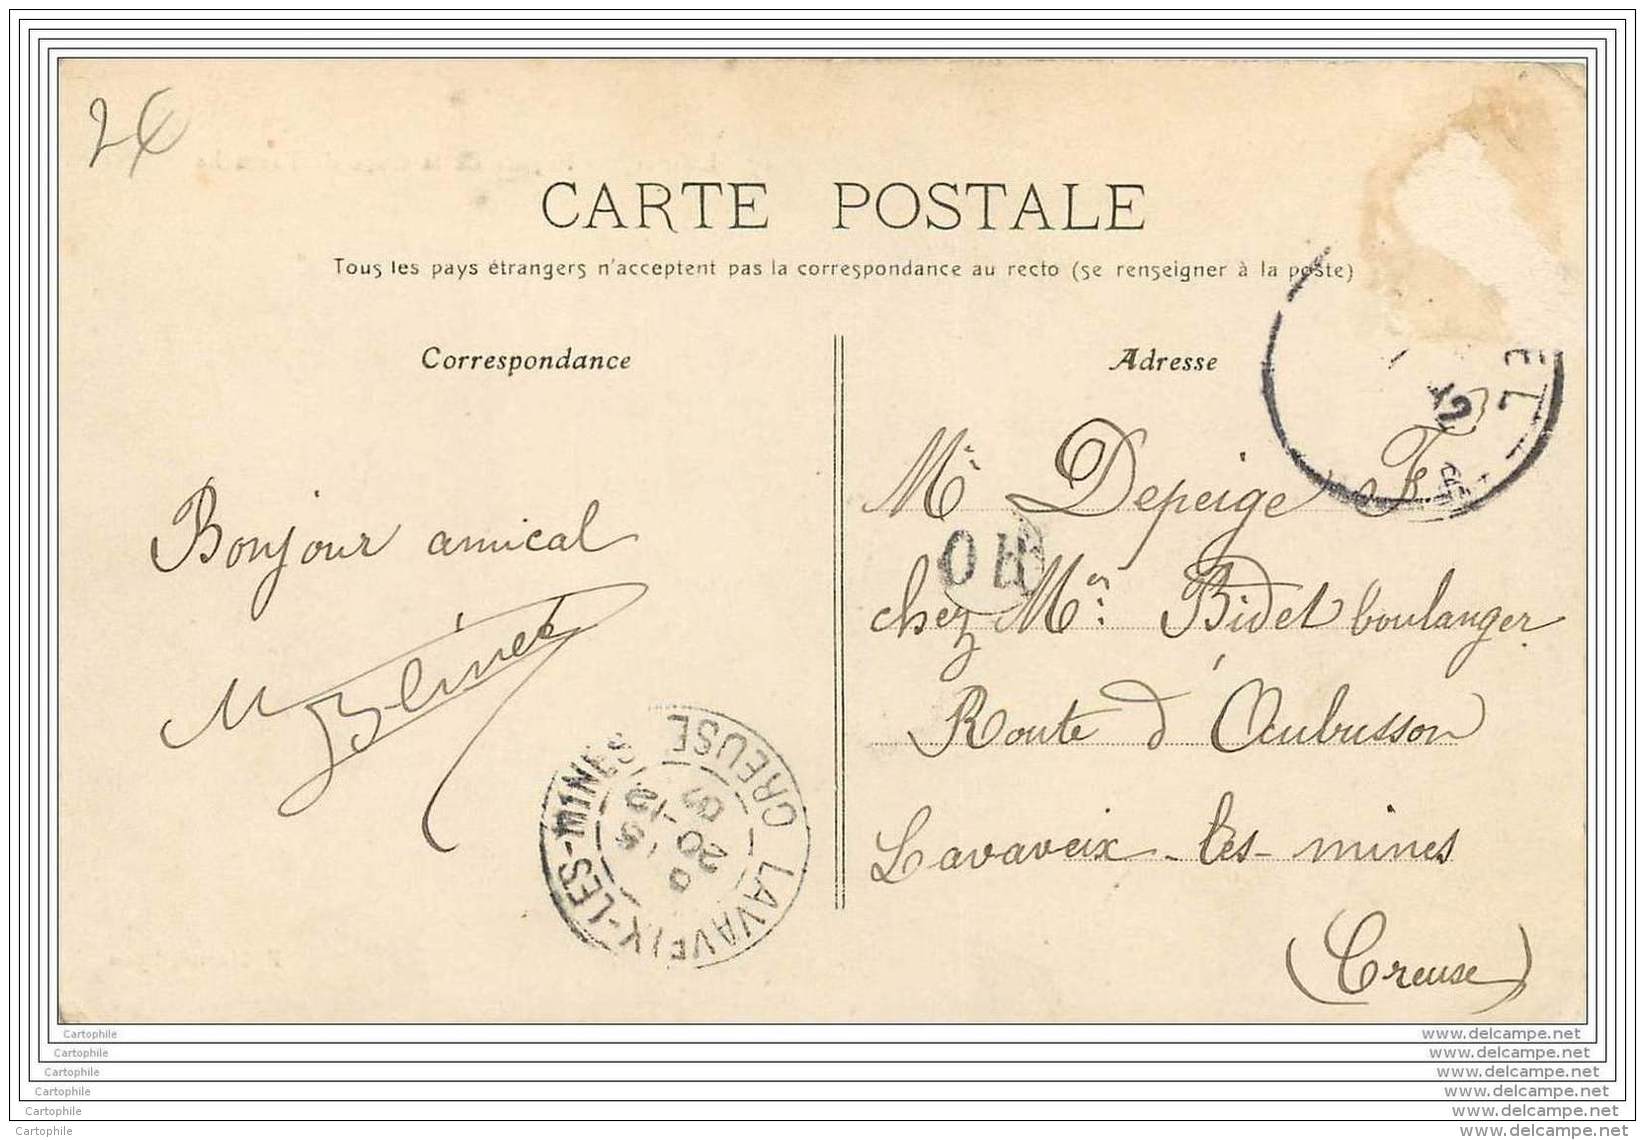 2€
CARTE POSTALE
Tous les pays étrangers n'acceptent pas la correspondance au recto (se renseigner à la poste)
Correspondance
Bonjour amical
Adresse
Mr Depeige F.
chez Mr Bidet boulanger
Route d'Aubusson
Lavaveix-les-mines
(Creuse)
OR
LAVAVEIX-LES-MINES
CREUSE
Cartophile
Cartophile
Cartophile
Cartophile
Cartophile
Cartophile
www.delcampe.net
www.delcampe.net
www.delcampe.net
www.delcampe.net
www.delcampe.net
www.delcampe.net